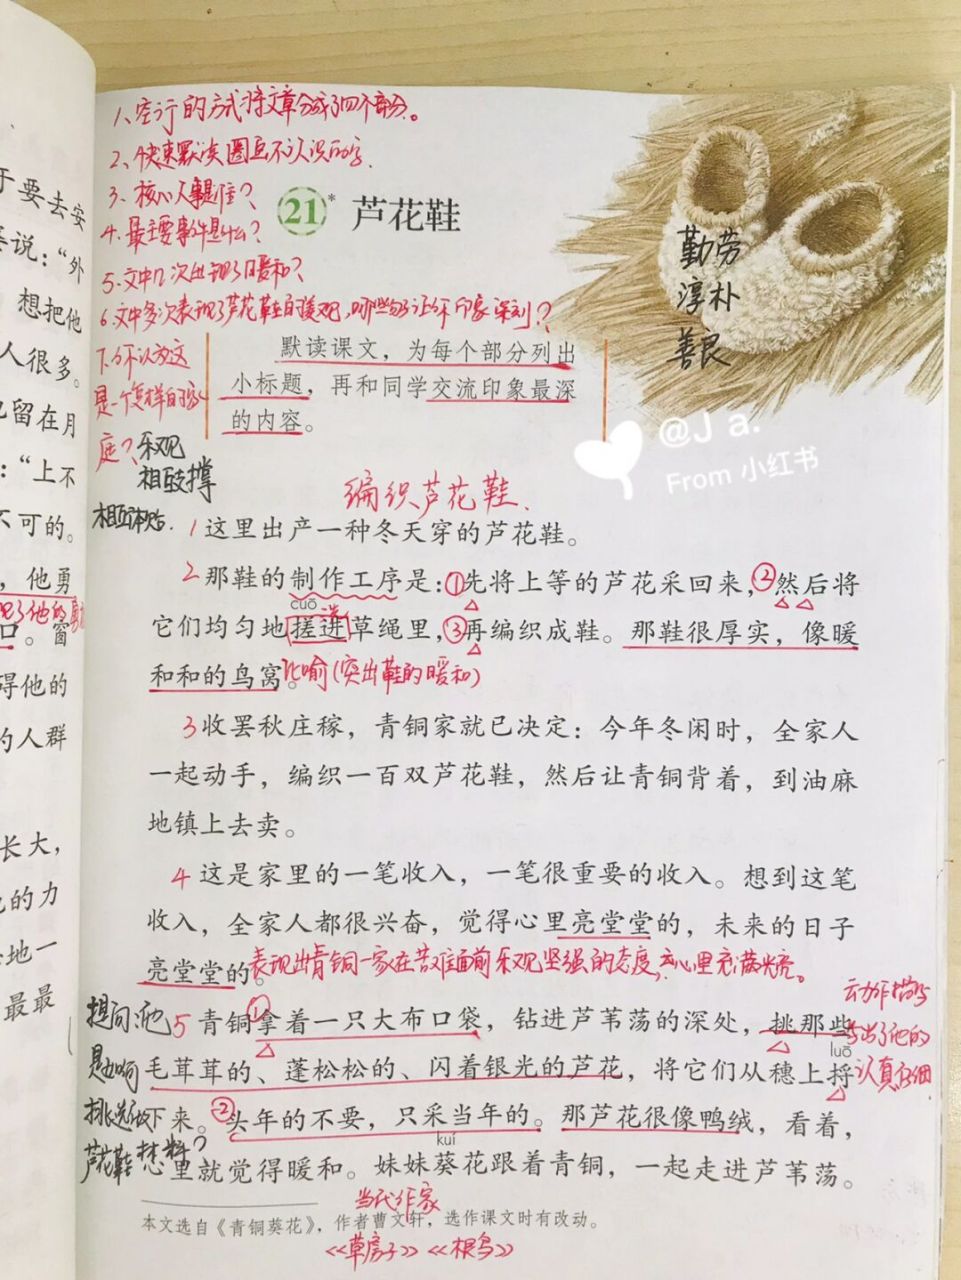 于要去安
说：“外
想把他
人很多。
留在月
：“上不
不可的。
，他勇
口。窗
得他的
的人群
长大，
的力
地一
最最
1、空行的方式将文章分成了四个部分。
2、快速默读圈画不认识的字
3、核心人事是谁？
4、最主要事件是什么？
5、文中几次出现了暖和？
6、文中多次表现了芦花鞋的美观，哪些句子让你印象深刻？
7、你认为这
是一个怎样的家
庭？乐观
相互支撑
相互体贴.
21* 芦花鞋
勤劳
淳朴
善良
默读课文，为每个部分列出
小标题，再和同学交流印象最深
的内容。
@J a.
From 小红书
编织芦花鞋.
1 这里出产一种冬天穿的芦花鞋。
2 那鞋的制作工序是：①先将上等的芦花采回来，②然后将
cuō
它们均匀地搓进草绳里，③再编织成鞋。那鞋很厚实，像暖
和和的鸟窝。比喻(突出鞋的暖和)
3 收罢秋庄稼，青铜家就已决定：今年冬闲时，全家人
一起动手，编织一百双芦花鞋，然后让青铜背着，到油麻
地镇上去卖。
4 这是家里的一笔收入，一笔很重要的收入。想到这笔
收入，全家人都很兴奋，觉得心里亮堂堂的，未来的日子
亮堂堂的。表现出青铜一家在苦难面前乐观坚强的态度，心里充满光亮。
5 青铜①拿着一只大布口袋，钻进芦苇荡的深处，挑那些
luō
毛茸茸的、蓬松松的、闪着银光的芦花，将它们从穗上捋
下来。②头年的不要，只采当年的。那芦花很像鸭绒，看着，
kuí
心里就觉得暖和。妹妹葵花跟着青铜，一起走进芦苇荡。
动作描写
写出了他的
认真仔细
提问：他
是如何
挑选做
芦花鞋材料？
当代作家
本文选自《青铜葵花》，作者曹文轩，选作课文时有改动。
《草房子》《根鸟》